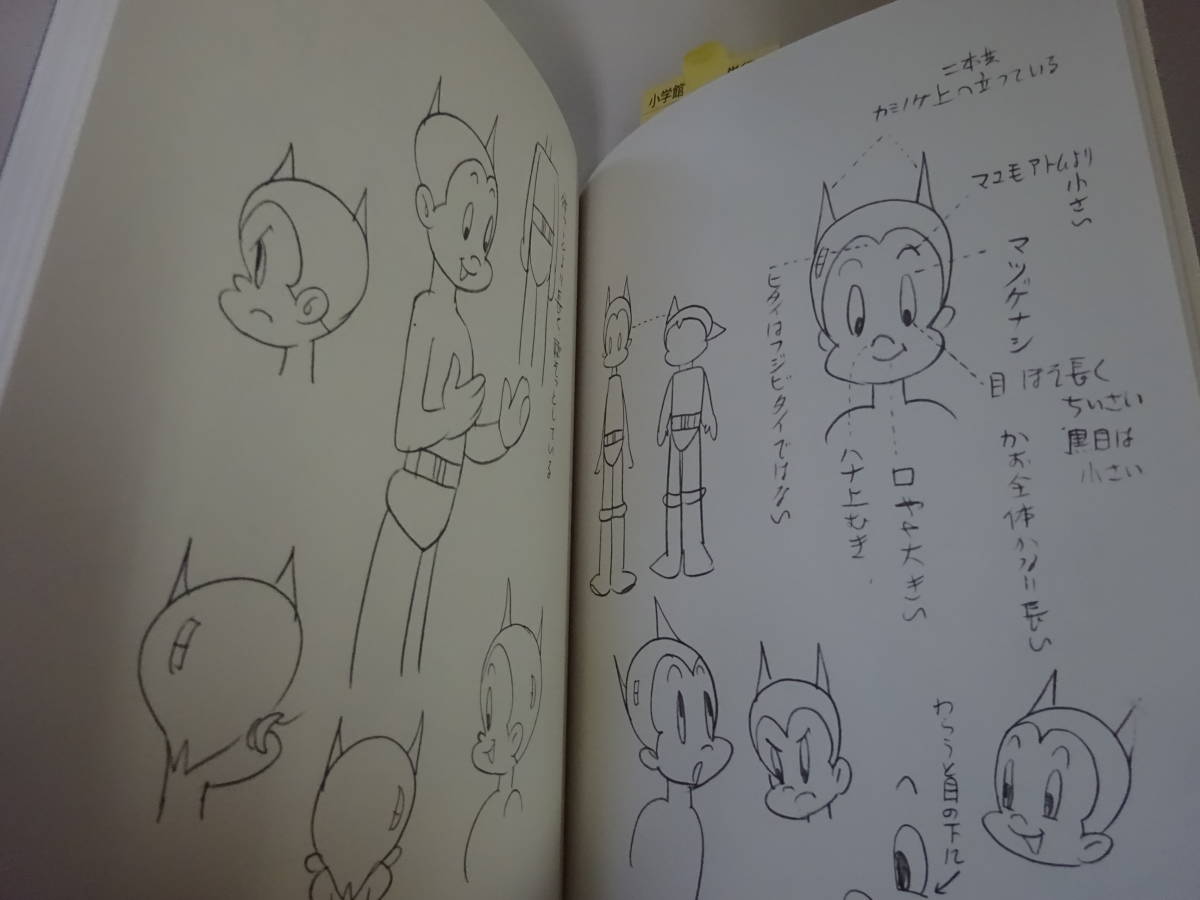 小学館
二本共
カミノケ上へ立っている
マユモアトムより
小さい
マツゲナシ
目 ほそ長く
ちいさい
黒目は
小さい
かお全体かなり長い
口やや大きい
ハナ上むき
ヒタイはフジビタイではない
わらうと目の下に